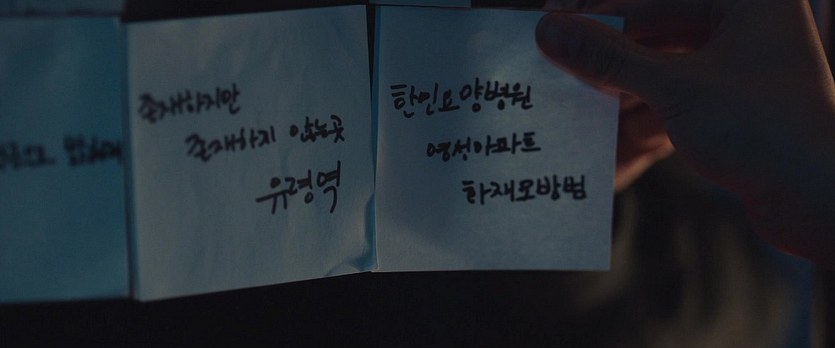 존재하지만
존재하지 않는곳
유령역
한민요양병원
영성아파트
화재모방범